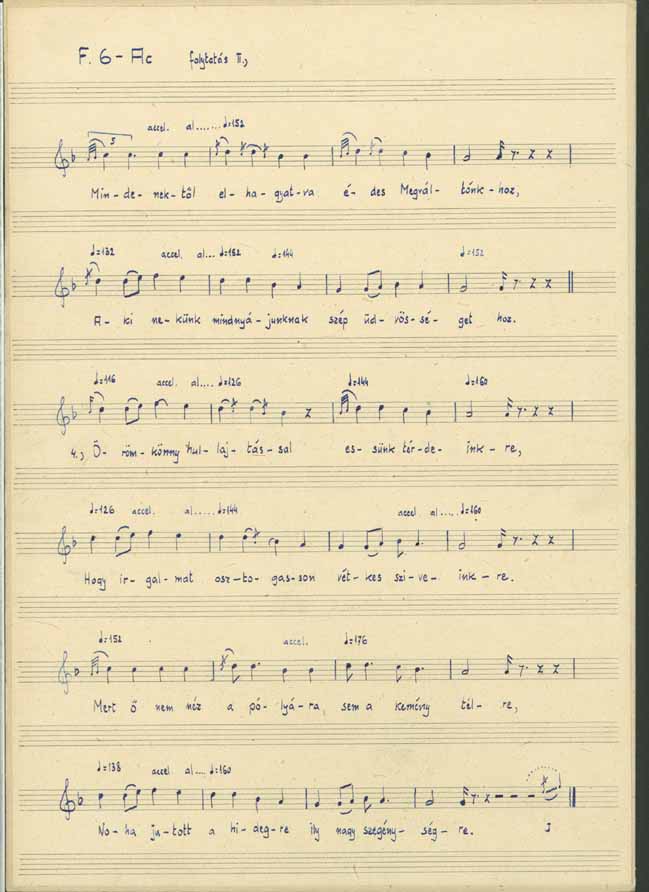 F. 6 - Ac folytatás II.,
5 accel. al...... d=152
Min-de-nek-től el-ha-gyat-va é-des Megvál-tónk-hoz,
d=132 accel. al... d=152 d=144 d=152
A-ki ne-künk mindnyá-junknak szép üd-vös-sé-get hoz.
d=116 accel. al.... d=126 d=144 d=160
4., Ö-röm-könny hul-laj-tás-sal es-sünk tér-de-ink-re,
d=126 accel. al..... d=144 accel. al.... d=160
Hogy ir-gal-mat osz-to-gas-son vét-kes szi-ve-ink-re.
d=152 accel. d=176
Mert ő nem néz a pó-lyá-ra, sem a kemény tél-re,
d=138 accel. al.... d=160
No-ha ju-tott a hi-deg-re ily nagy szegény-ség-re.